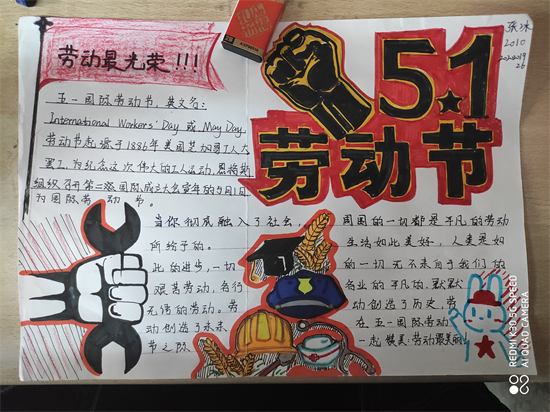 劳动最光荣!!!
五一国际劳动节,英文名:
International Workers' Day 或 May Day
劳动节起源于1886年美国芝加哥工人大
罢工,为纪念这次伟大的工人运动,恩格斯
组织召开第二次国际成立大会宣布的5月1日
为国际劳动节。
5.1
劳动节
2010
当你彻底融入了社会,
所给予的。
此的进步,一切
跟其劳动,名行
无悔的劳动。劳
动创造了未来
节之际
周围的一切都是平凡的劳动
生活如此美好,人类是如
的一切无不来自于我们的
各业的平凡的、默默
动创造了历史,劳
在五一国际劳动
一起赞美:劳动最美丽
REDMI K30 5G SPEED
AI QUAD CAMERA